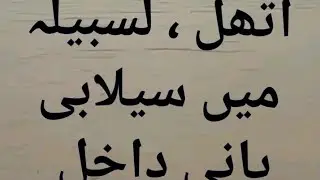 اتھل ، لسبیلہ
میں سیلابی
پانی داخل